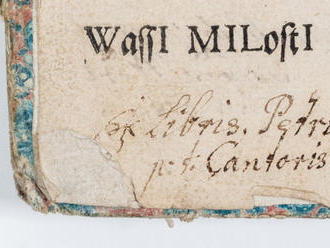 WaſſI MILoſtI
Ex Libris. Petri
p. t. Cantoris